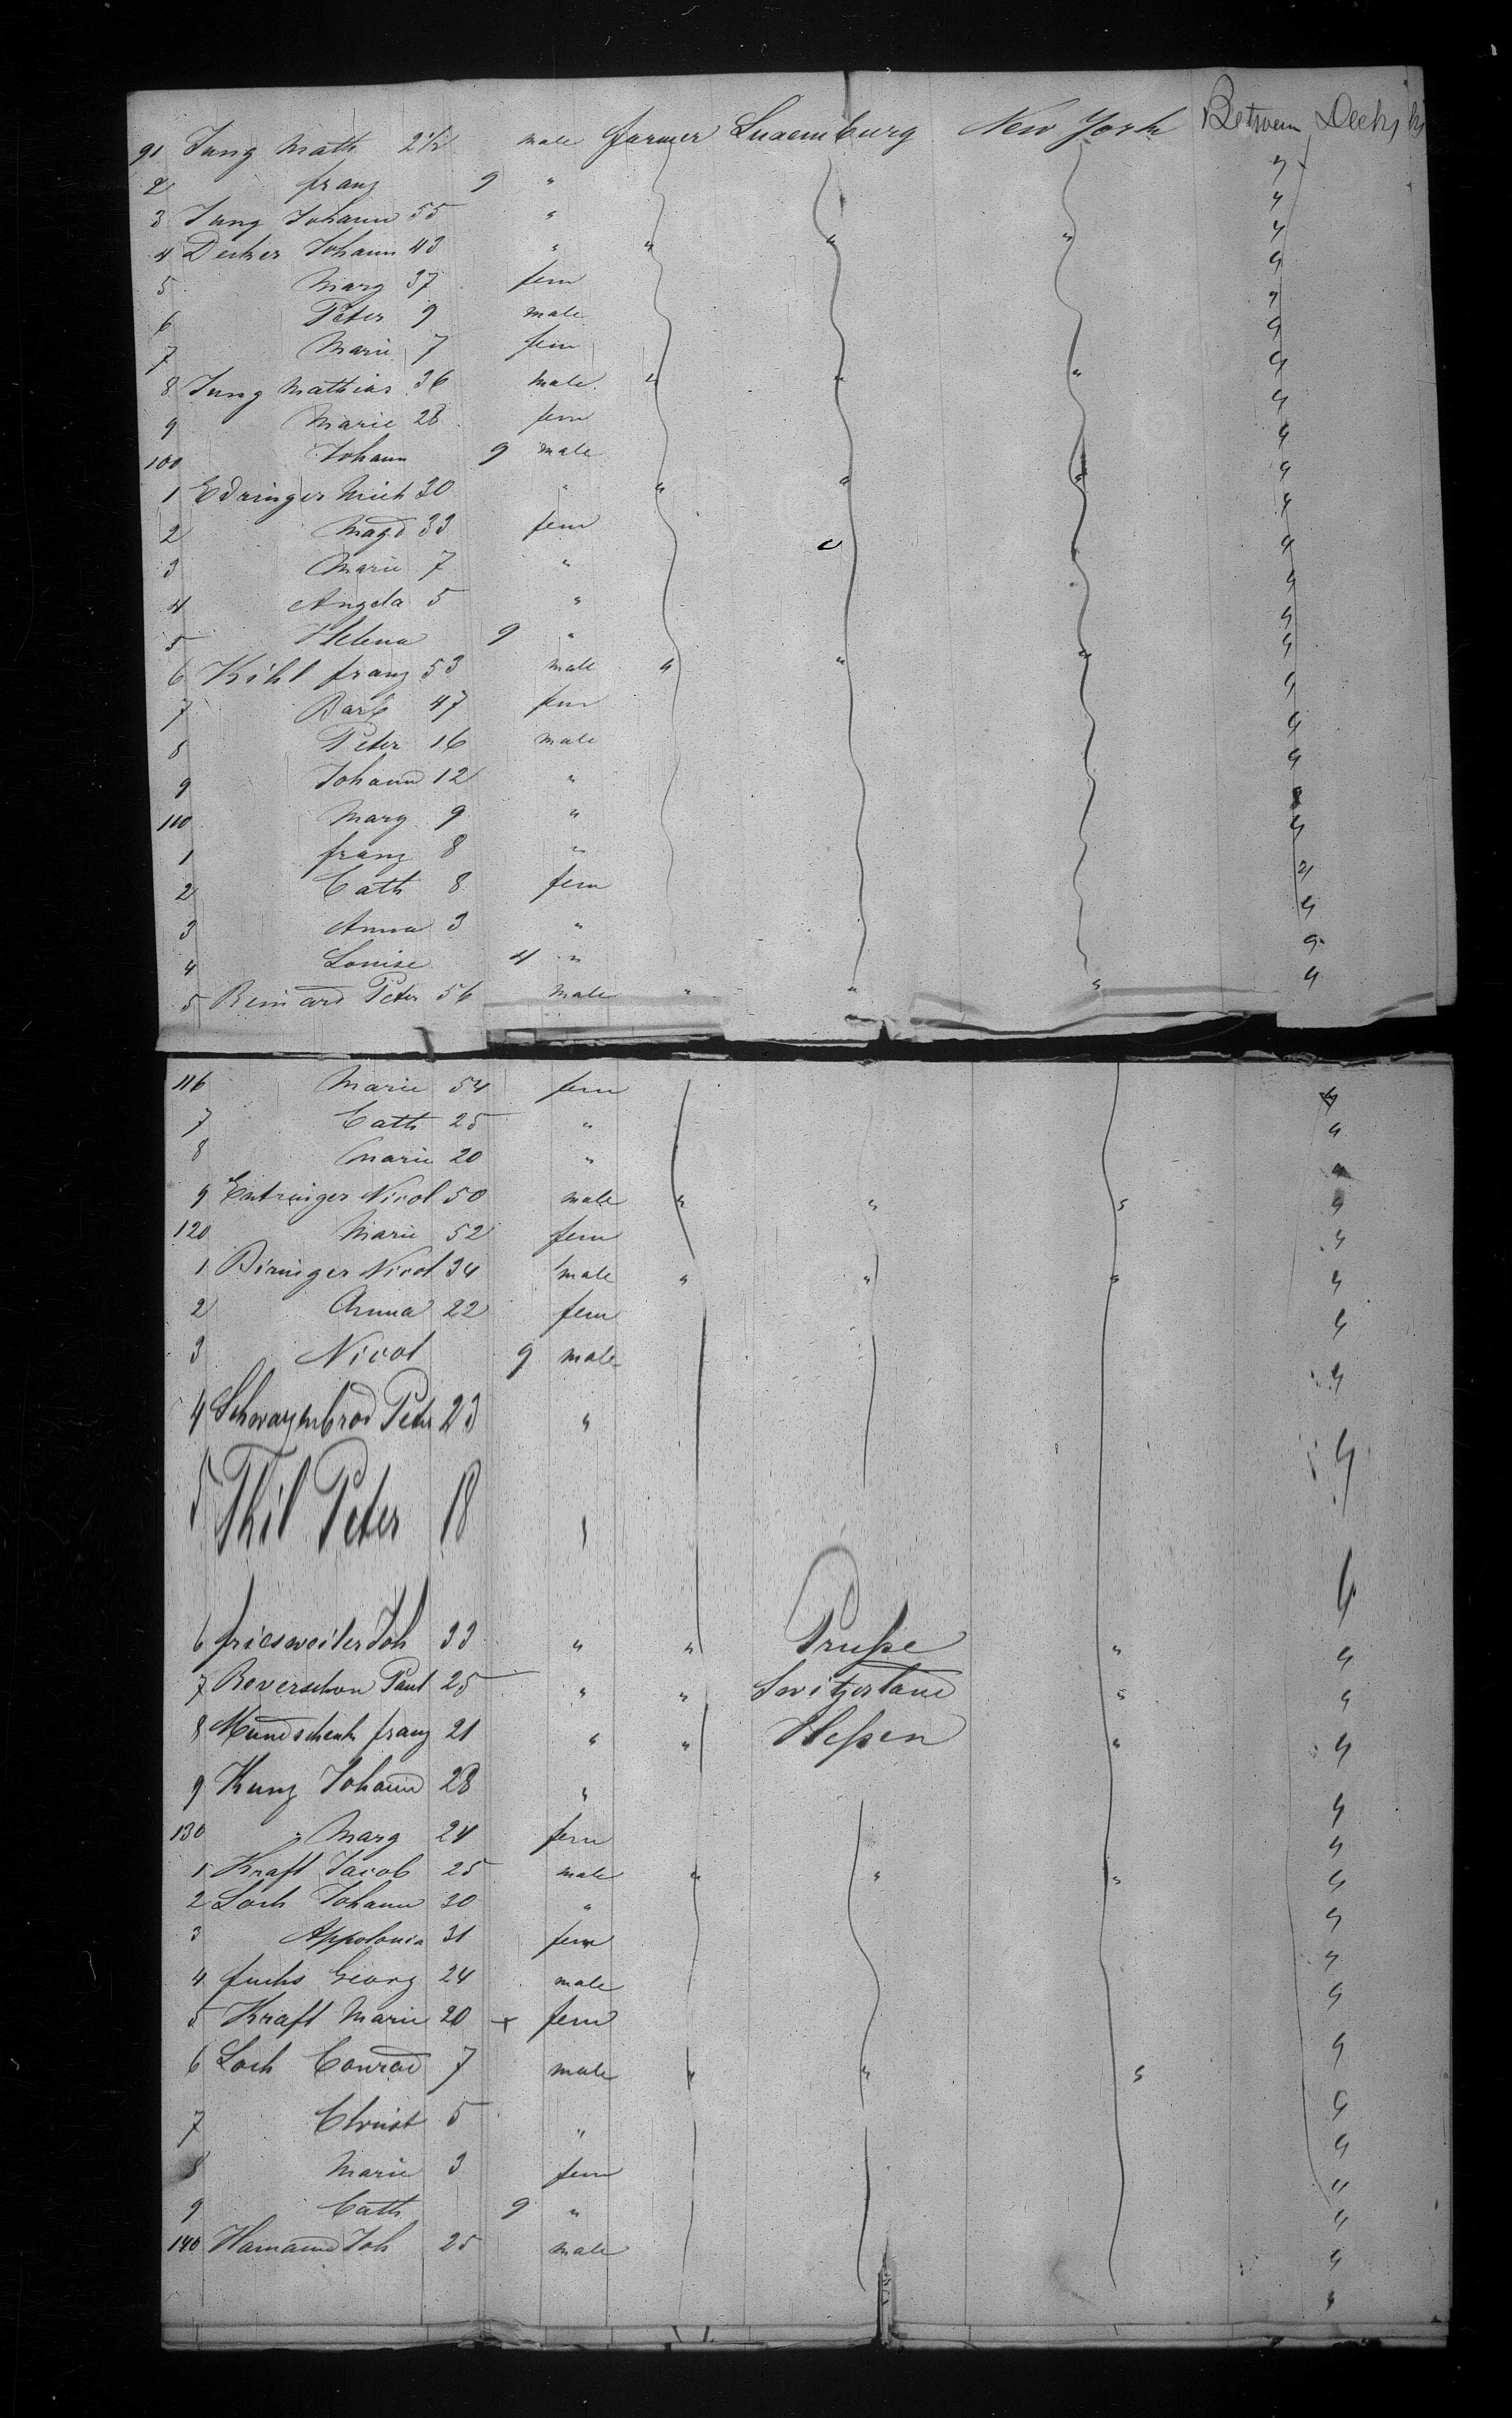 91 Jung Math 2 1/2 male farmer Luxemburg New York Between Decks
2 franz 9 " "
3 Jung Johann 55 " "
4 Decker Johann 43 " " " " "
5 Marg 37 fem "
6 Peter 9 male "
7 Marie 7 fem "
8 Jung Mathias 36 male " " " "
9 Marie 28 fem "
100 Johann 9 male "
1 Edringer Mich 30 " " " " "
2 Magd 33 fem "
3 Marie 7 " "
4 Angela 5 " "
5 Helena 9 " "
6 Kihl franz 53 male " " " "
7 Barb 47 fem "
8 Peter 16 male "
9 Johann 12 " "
110 Marg 9 " "
1 franz 8 " "
2 Cath 8 fem "
3 Anna 3 " "
4 Louise 4 " "
5 Reinard Peter 56 male " " " "
116 Marie 54 fem "
7 Cath 25 " "
8 Marie 20 " "
9 Entringer Nicol 50 male " " " "
120 Marie 52 fem "
1 Biringer Nicol 34 male " " " "
2 Anna 22 fem "
3 Nicol 9 male "
4 Schwarzenbrod Peter 23 " "
5 Thil Peter 18 " "
6 friesweiler Joh 33 " " Prusse " "
7 Reverschon Paul 25 " " Switzerland " "
8 Mundschenk franz 21 " " Hessen " "
9 Kunz Johann 28 " "
130 " Marg 24 fem "
1 Kraft Jacob 25 male " " " "
2 Loch Johann 30 " "
3 Appolonia 31 fem "
4 fuchs Georg 24 male "
5 Kraft Marie 20 + fem "
6 Loch Conrad 7 male " " " "
7 Christ 5 " "
8 Marie 3 fem "
9 Cath 9 " "
140 Hamann Joh 25 male "